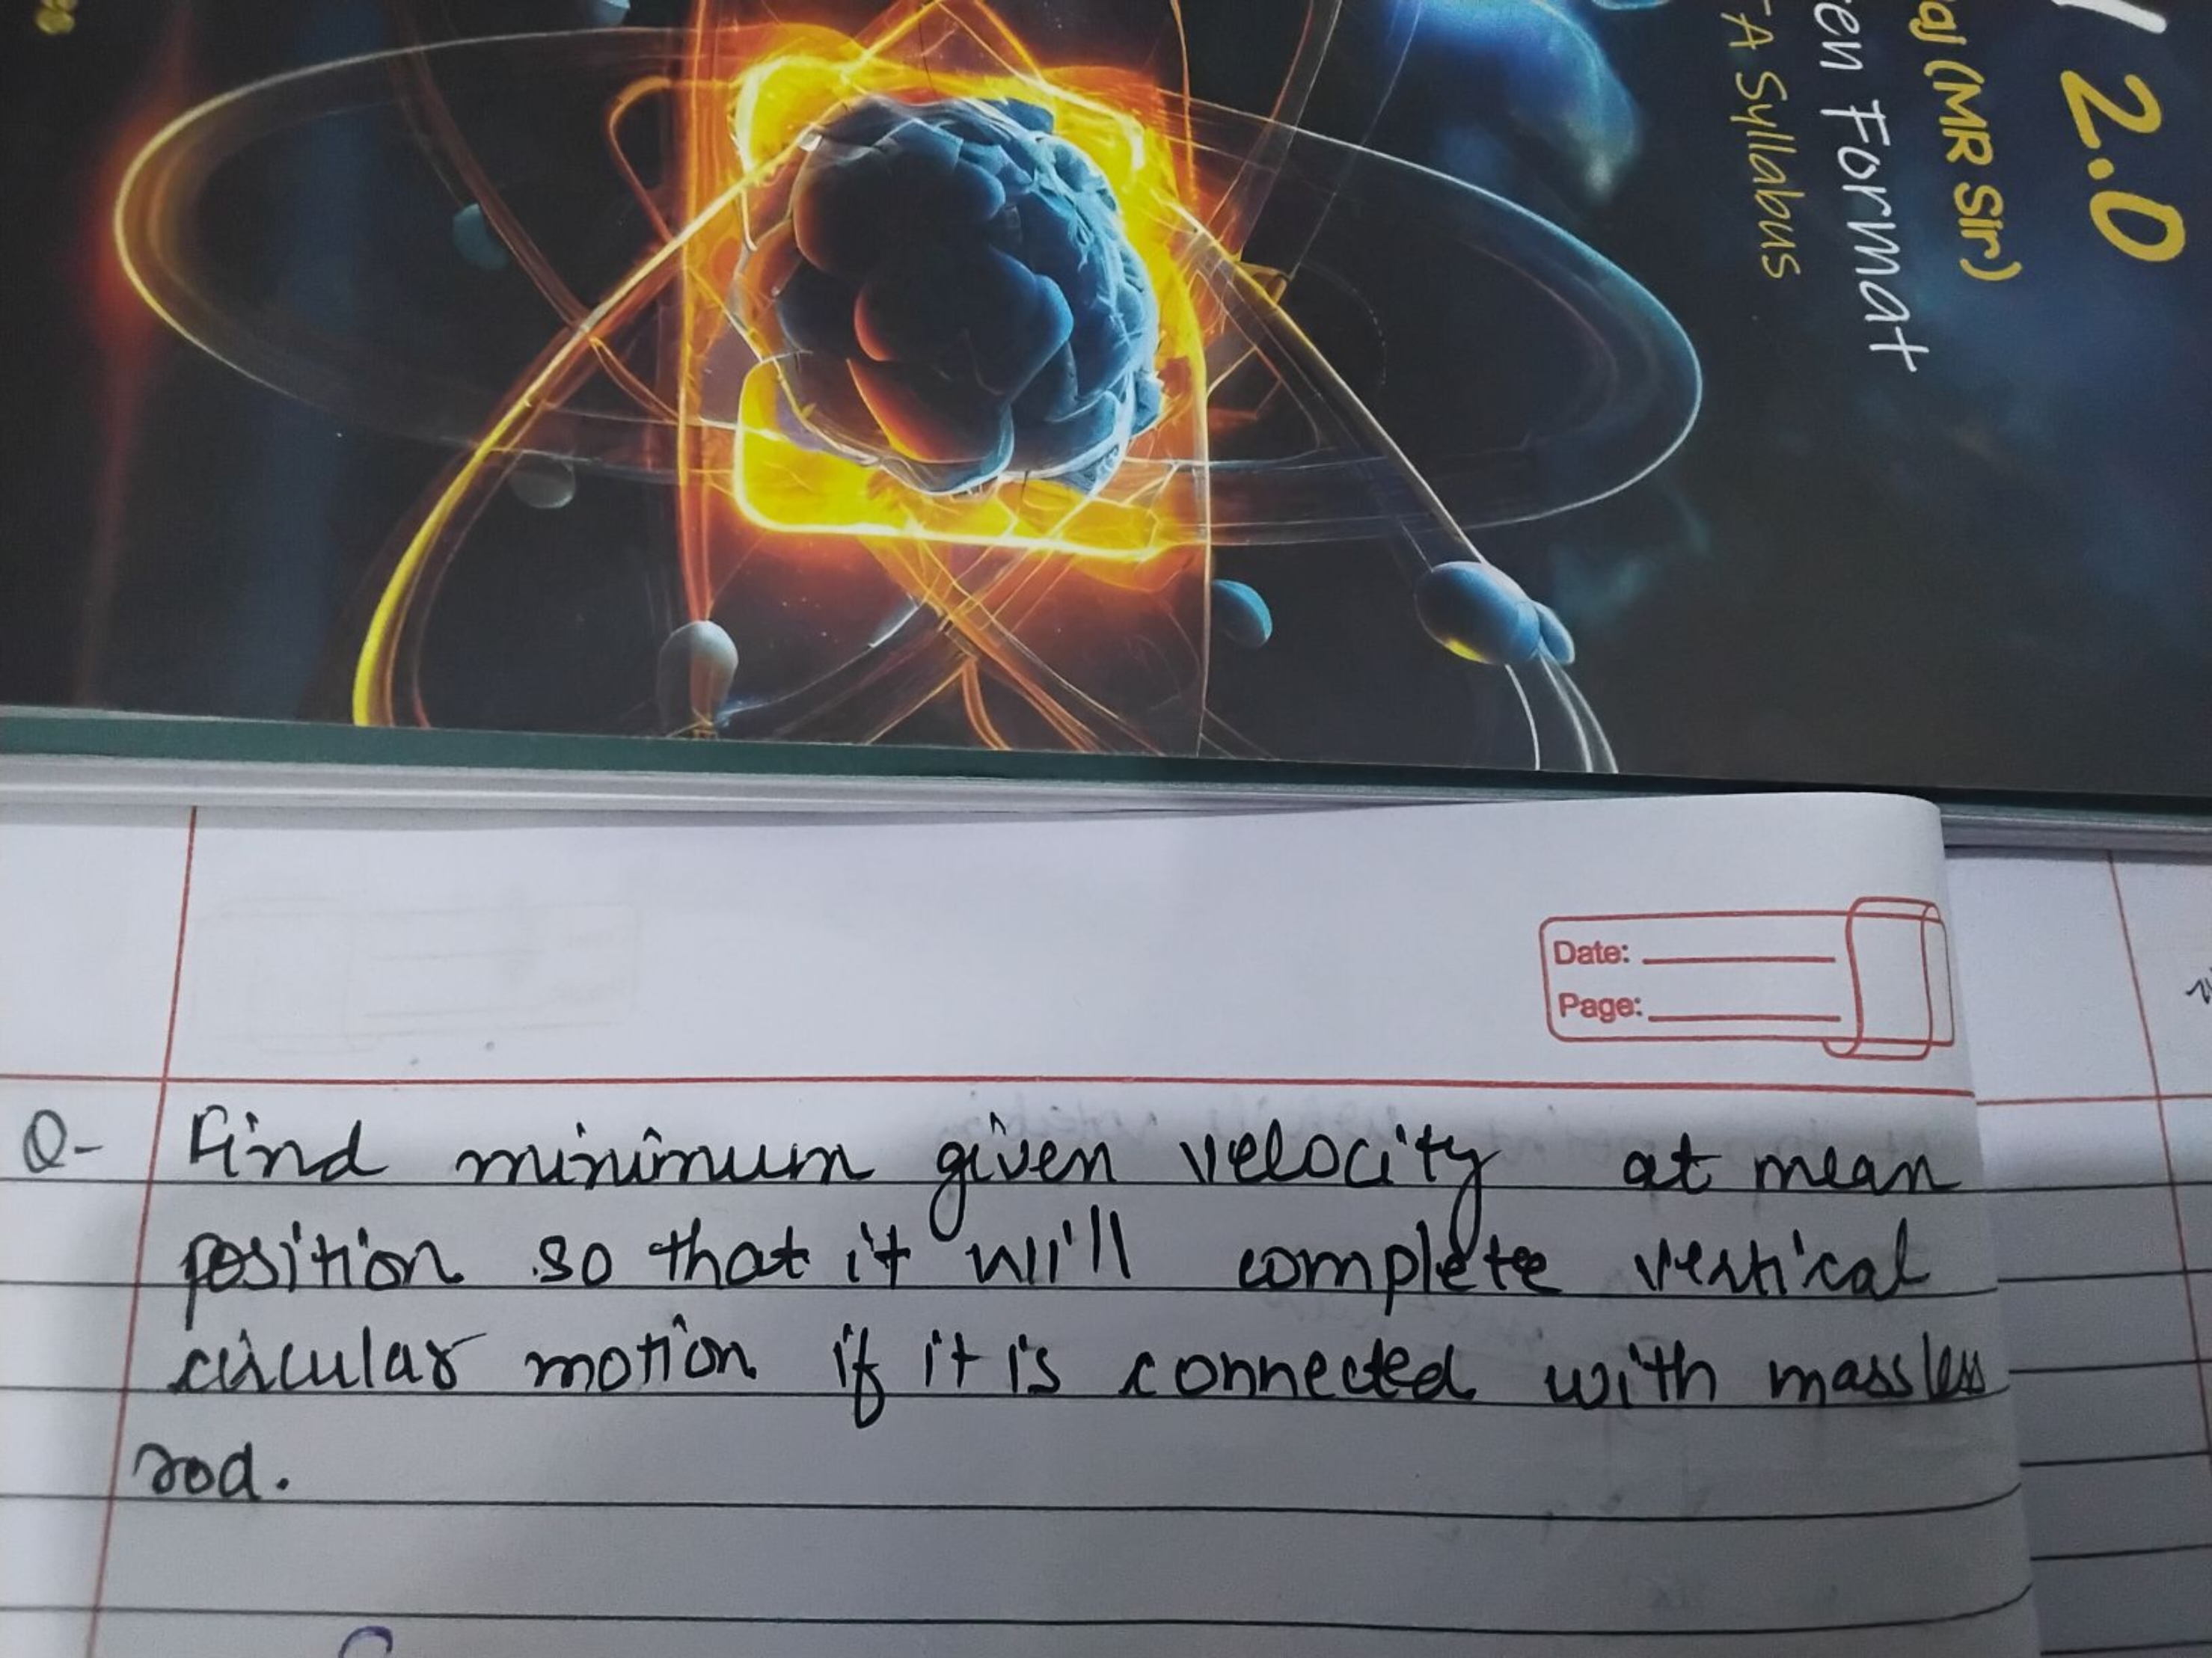 2.0
(MR Sir)
Format
Syllabus
Date:
Page:
Q- Find minimum given velocity at mean
position so that it will complete vertical
circular motion if it is connected with massless
rod.